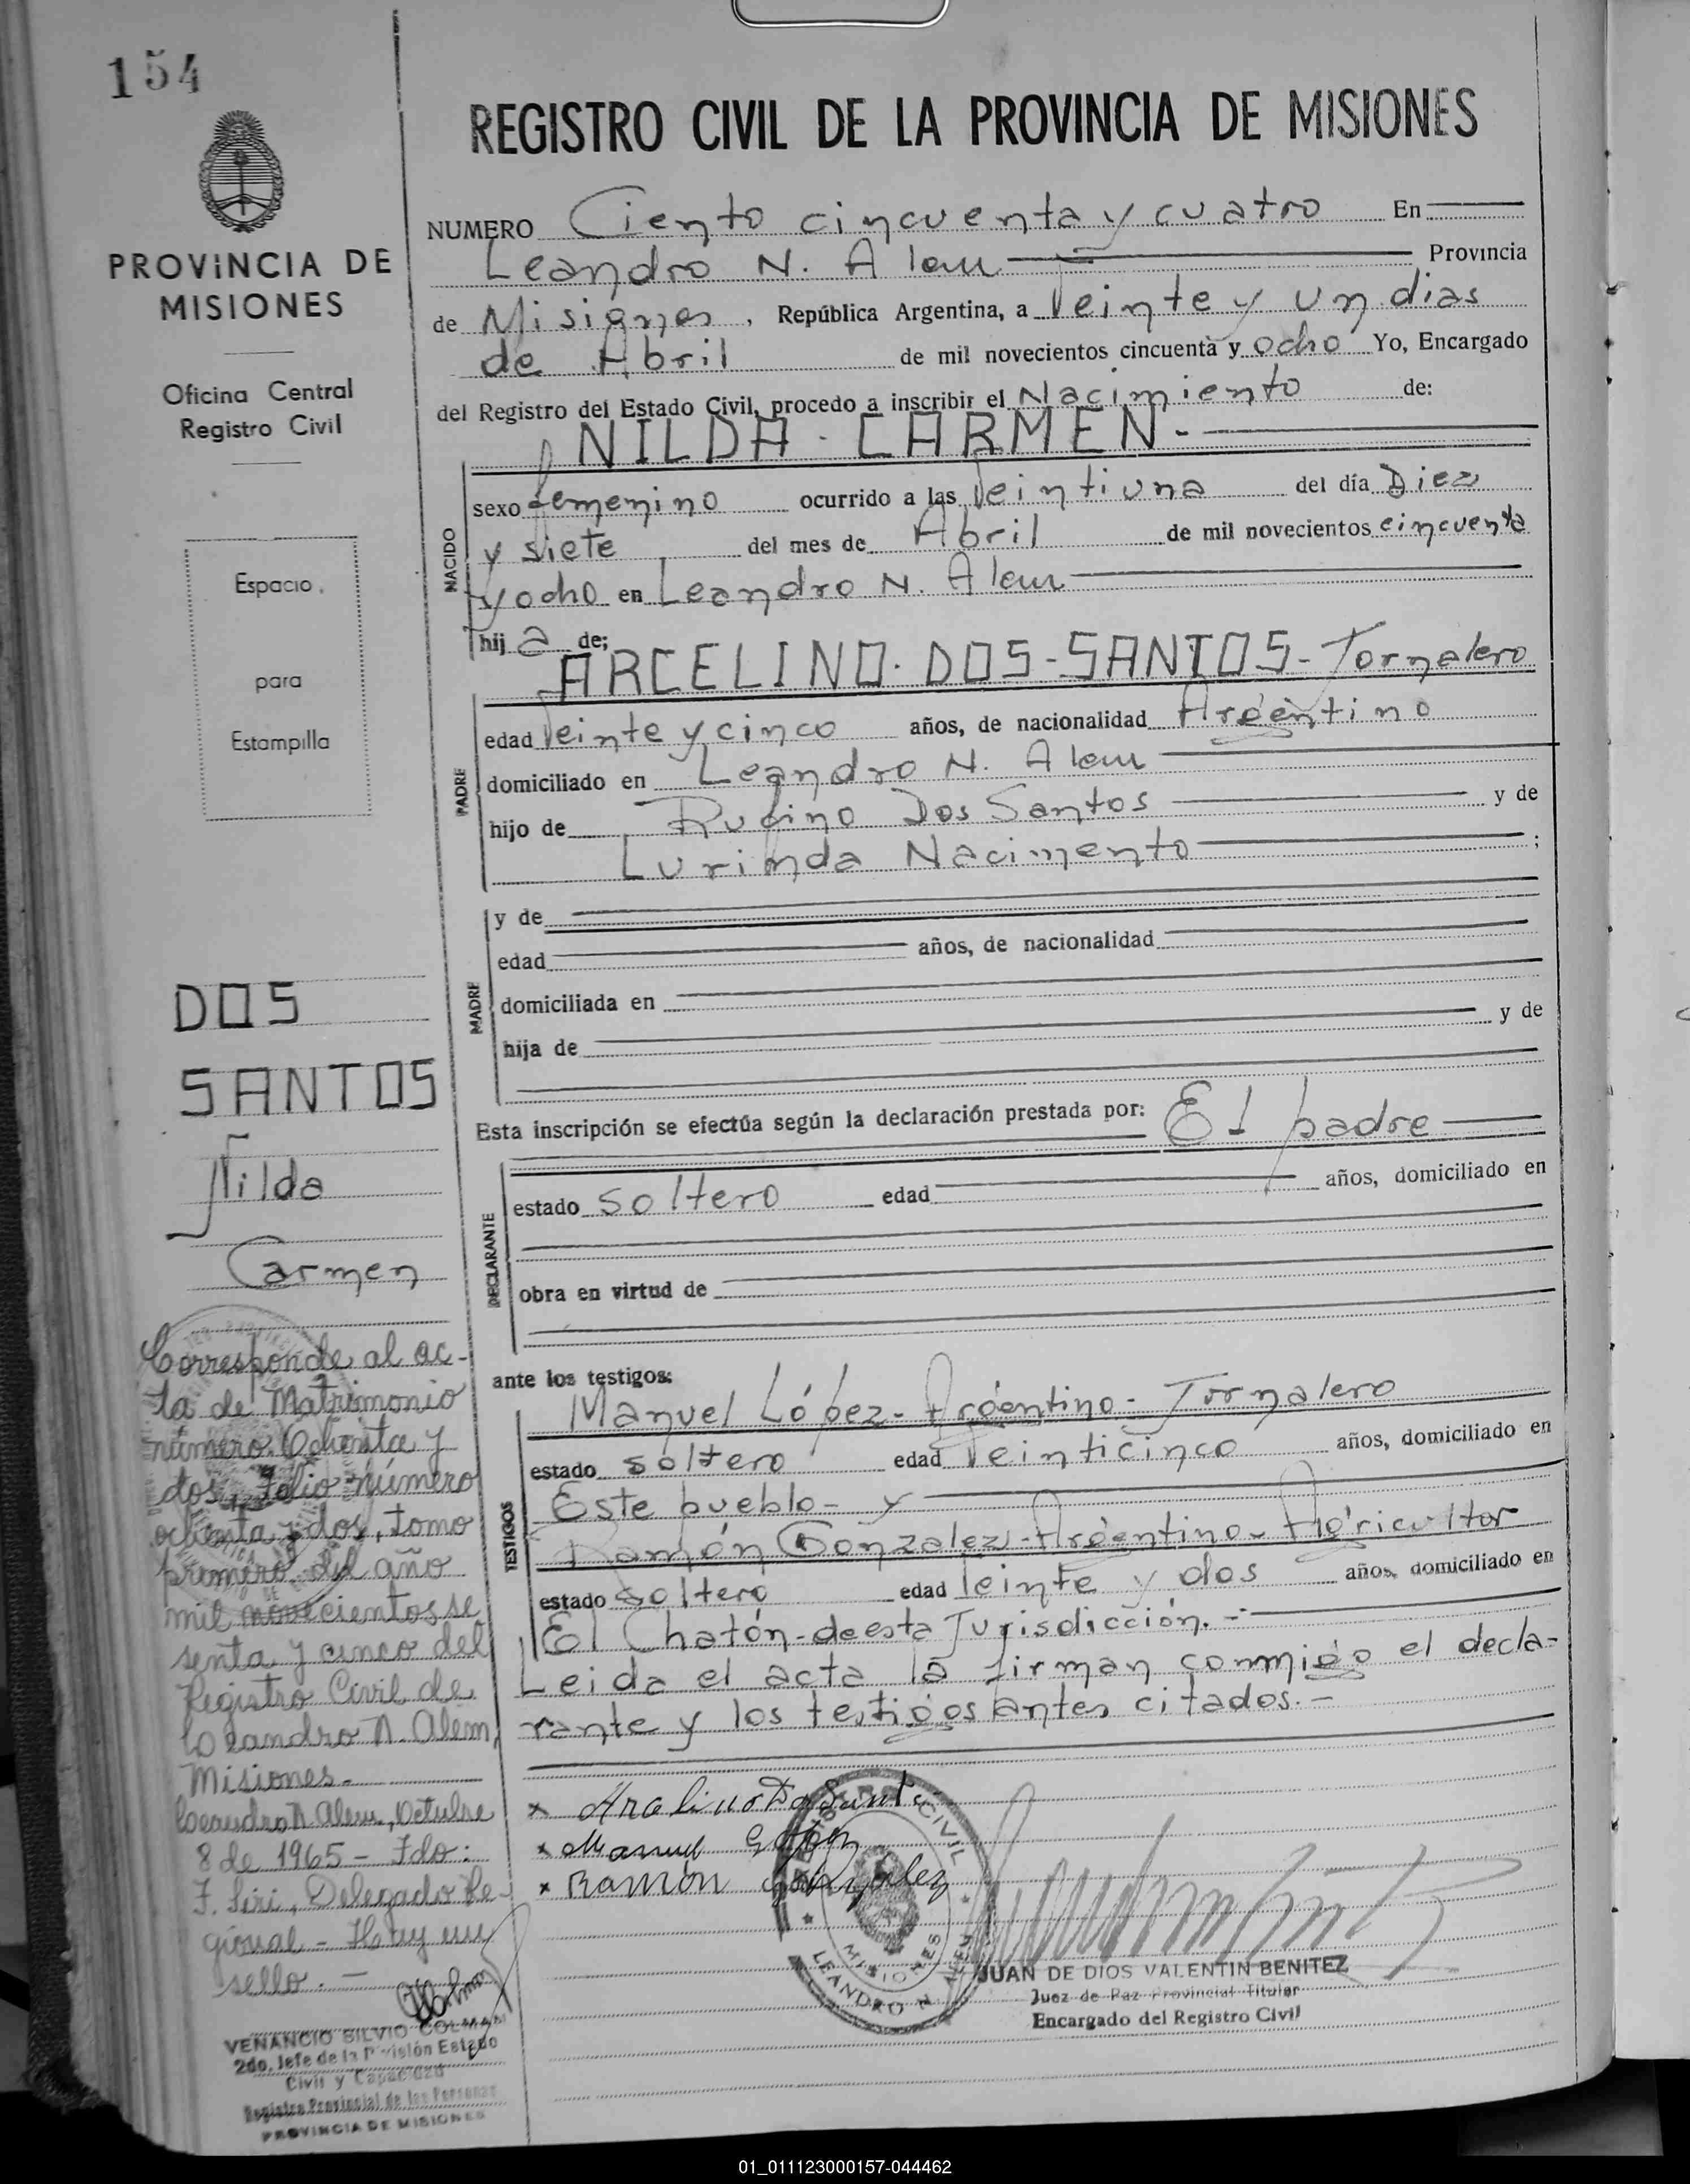 154
PROVINCIA DE
MISIONES
Oficina Central
Registro Civil
Espacio
para
Estampilla
REGISTRO CIVIL DE LA PROVINCIA DE MISIONES
NUMERO Ciento cincuenta y cuatro En
Leandro N. Alem Provincia
de Misiones, República Argentina, a Veinte y un dias
de Abril de mil novecientos cincuenta y ocho Yo, Encargado
del Registro del Estado Civil, procedo a inscribir el Nacimiento de:
NILDA - CARMEN.-
NACIDO
sexo femenino ocurrido a las Veintiuna del día Diez
y siete del mes de Abril de mil novecientos cincuenta
y ocho en Leandro N. Alem
hij a de;
ARCELINO DOS-SANTOS- Jornalero
PADRE
edad Veinte y cinco años, de nacionalidad Argentino
domiciliado en Leandro N. Alem
hijo de Rufino Dos Santos y de
Lurinda Nacimento ;
MADRE
y de
edad años, de nacionalidad
domiciliada en
hija de y de
Esta inscripción se efectúa según la declaración prestada por: El padre
DECLARANTE
estado soltero edad años, domiciliado en
obra en virtud de
ante los testigos:
TESTIGOS
Manuel López- Argentino- Jornalero
estado soltero edad Veinticinco años, domiciliado en
Este pueblo- y
Ramón Gonzalez-Argentino-Agricultor
estado soltero edad Veinte y dos años, domiciliado en
El Chatón-de esta Jurisdicción.-
Leida el acta la firman conmigo el decla-
rante y los testigos antes citados.-
x
x Manuel
x Ramón Gonzalez
CIVIL
MISIONES
LEANDRO N. ALEM
JUAN DE DIOS VALENTIN BENITEZ
Juez de Paz Provincial Titular
Encargado del Registro Civil
DOS
SANTOS
Nilda
Carmen
Corresponde al ac-
ta de Matrimonio
número Ochenta y
dos, Folio número
ochenta y dos, tomo
primero del año
mil novecientos se
senta y cinco del
Registro Civil de
Leandro N. Alem,
Misiones.-
Leandro N. Alem, Octubre
8 de 1965 - Fdo:
F. Siri, Delegado Re-
gional - Hay un
sello. -
VENANCIO SILVIO COLMAN
2do. Jefe de la División Estado
Civil y Capacidad
Registro Provincial de las Personas
PROVINCIA DE MISIONES
01_011123000157-044462